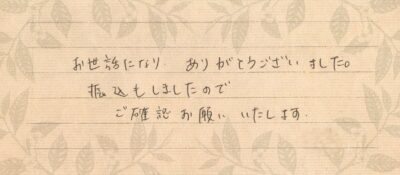 お世話になり、ありがとうございました。
振込もしましたので
ご確認お願いいたします.